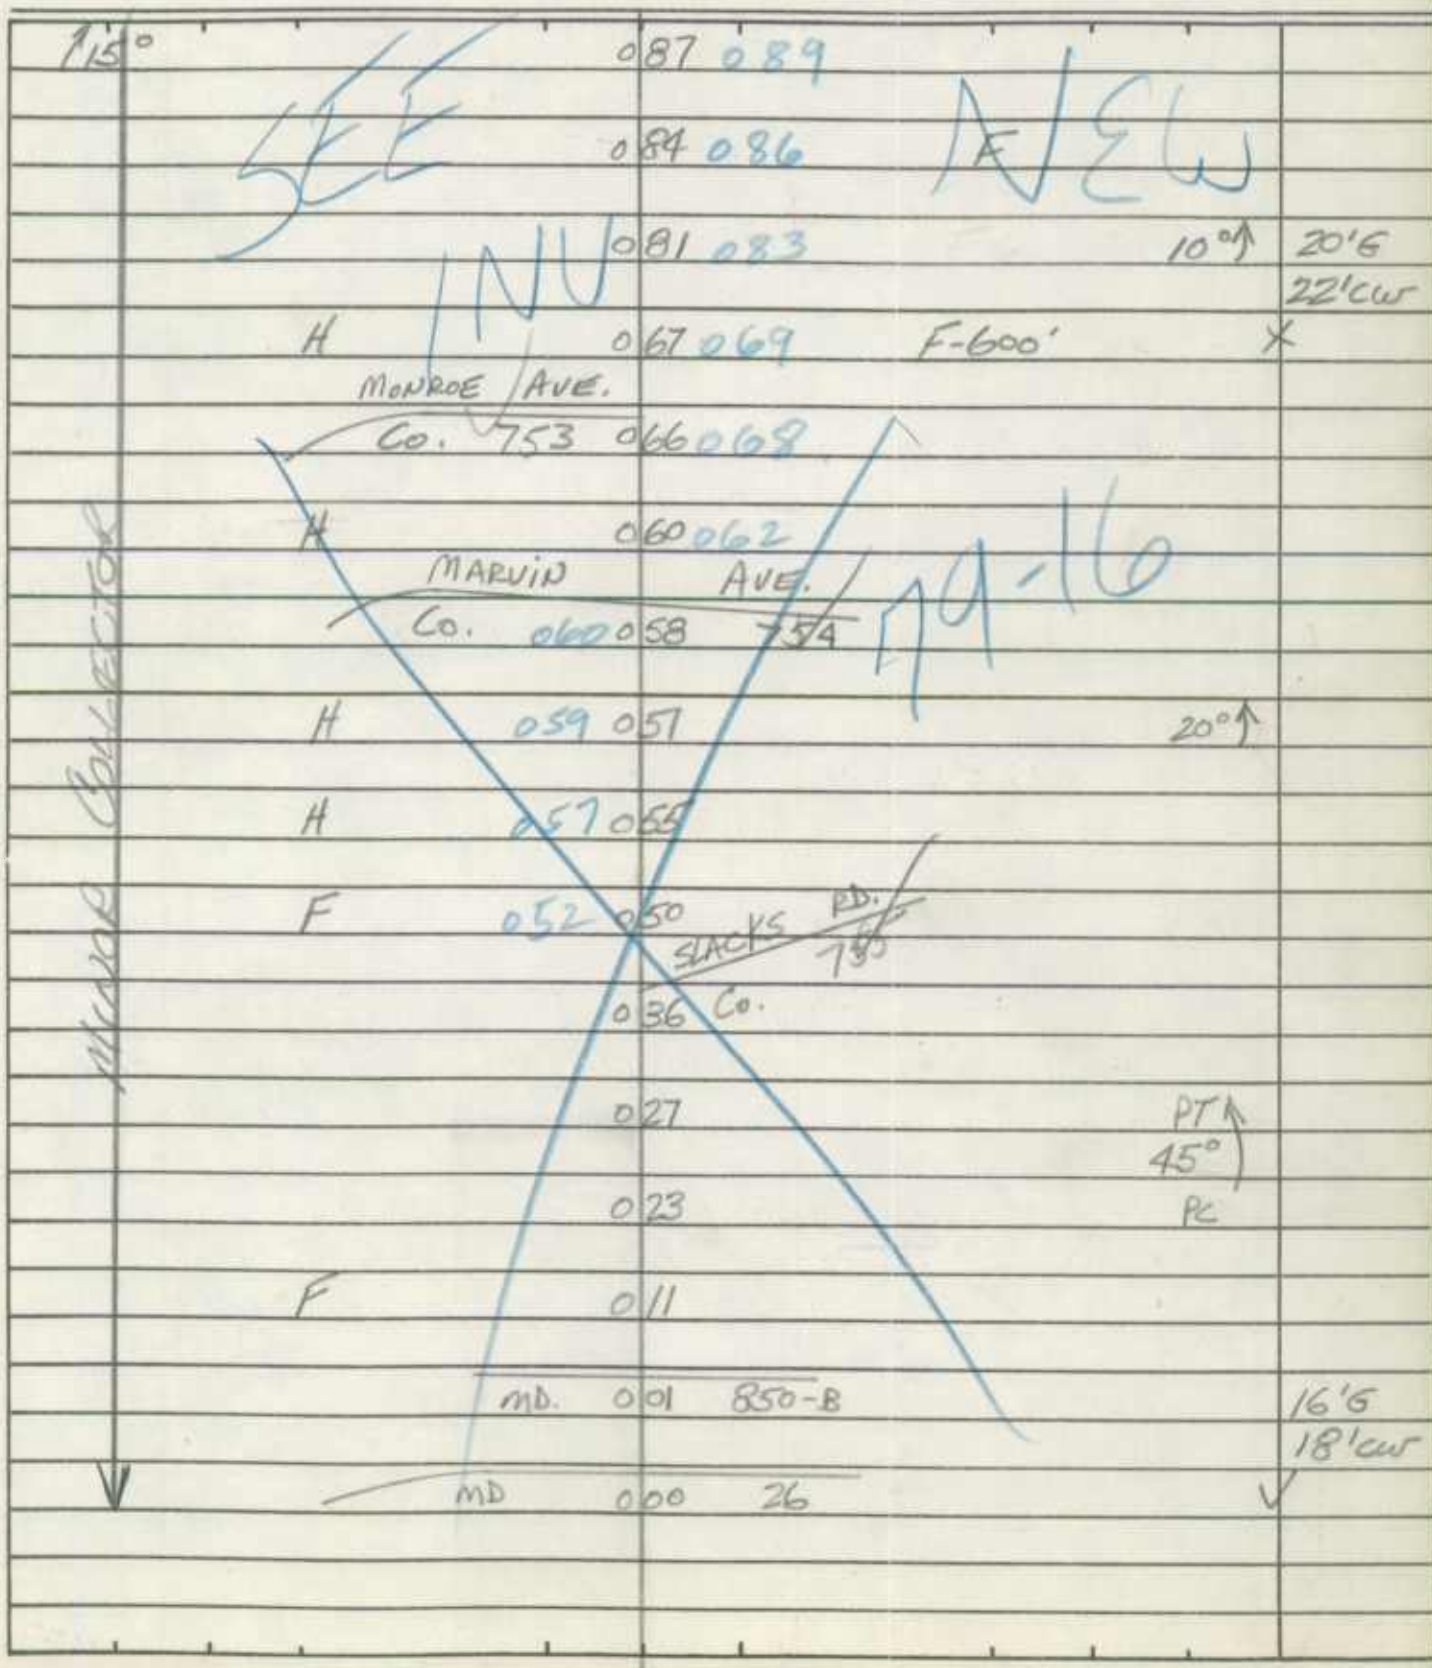 ↑15° 087 089
SEE NEW
084 086 F
INV 081 083 10°↑ 20'G
22'CW
H 067 069 F-600' X
MONROE AVE.
Co. 753 066 068
H 060 062
MARVIN AVE. 79-16
Co. 060 058 754
H 059 057 20°↑
H 057 055
F 052 050
SLACKS RD.
036 Co.
027 PT
45°
023 PC
F 011
MD. 001 850-B 16'G
18'CW
MD 000 26
MINOR COLLECTOR